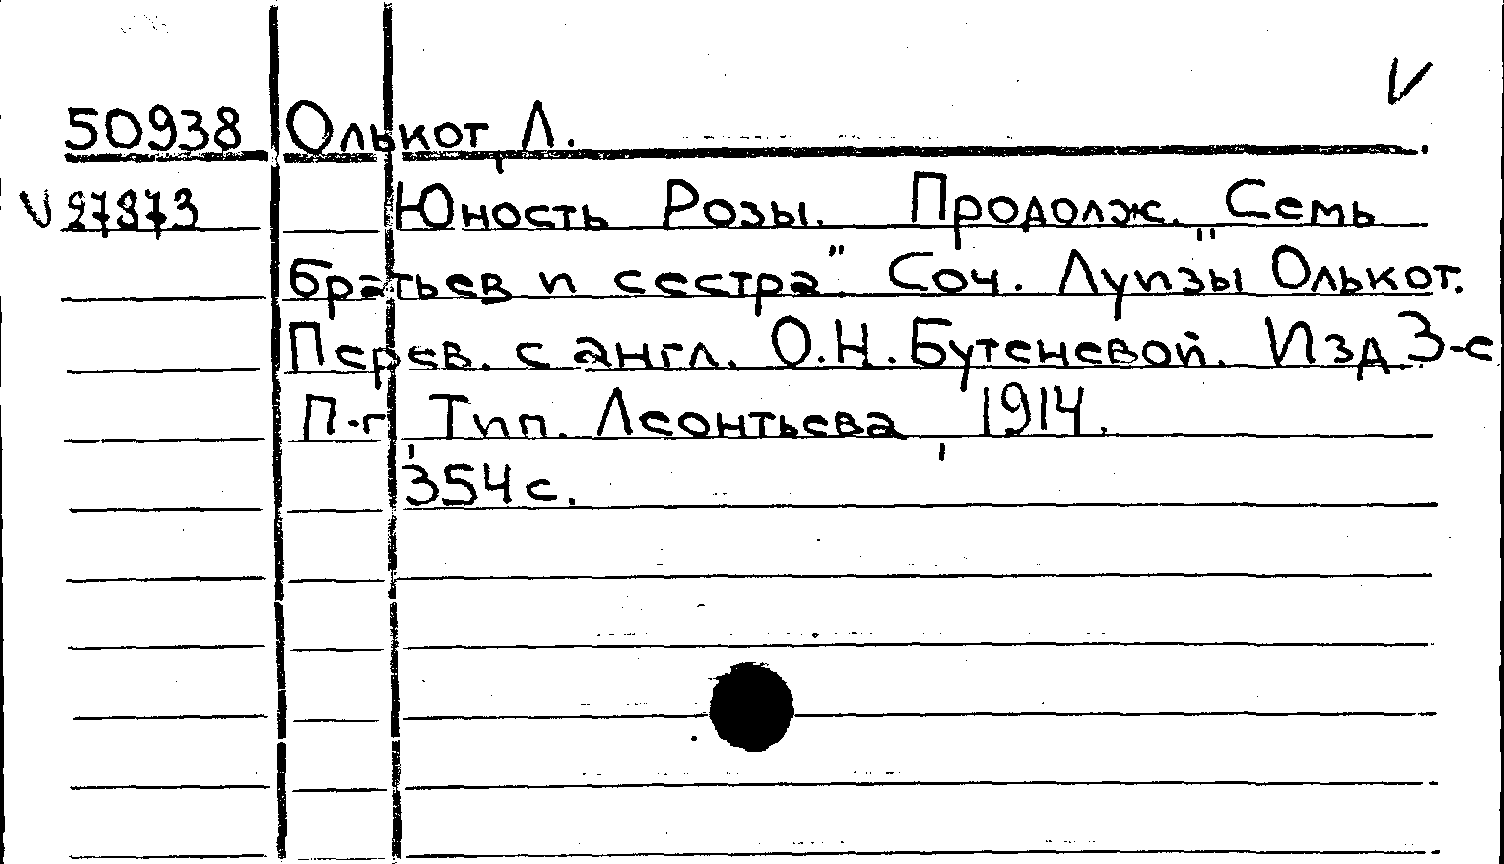 V
50938 Олькот, Л.
V 27873 Юность Розы. Продолж. „Семь
братьев и сестра". Соч. Луизы Олькот.
Перев. с англ. О.Н. Бутеневой. Изд. 3-е
П-г, Тип. Леонтьева, 1914.
354 с.